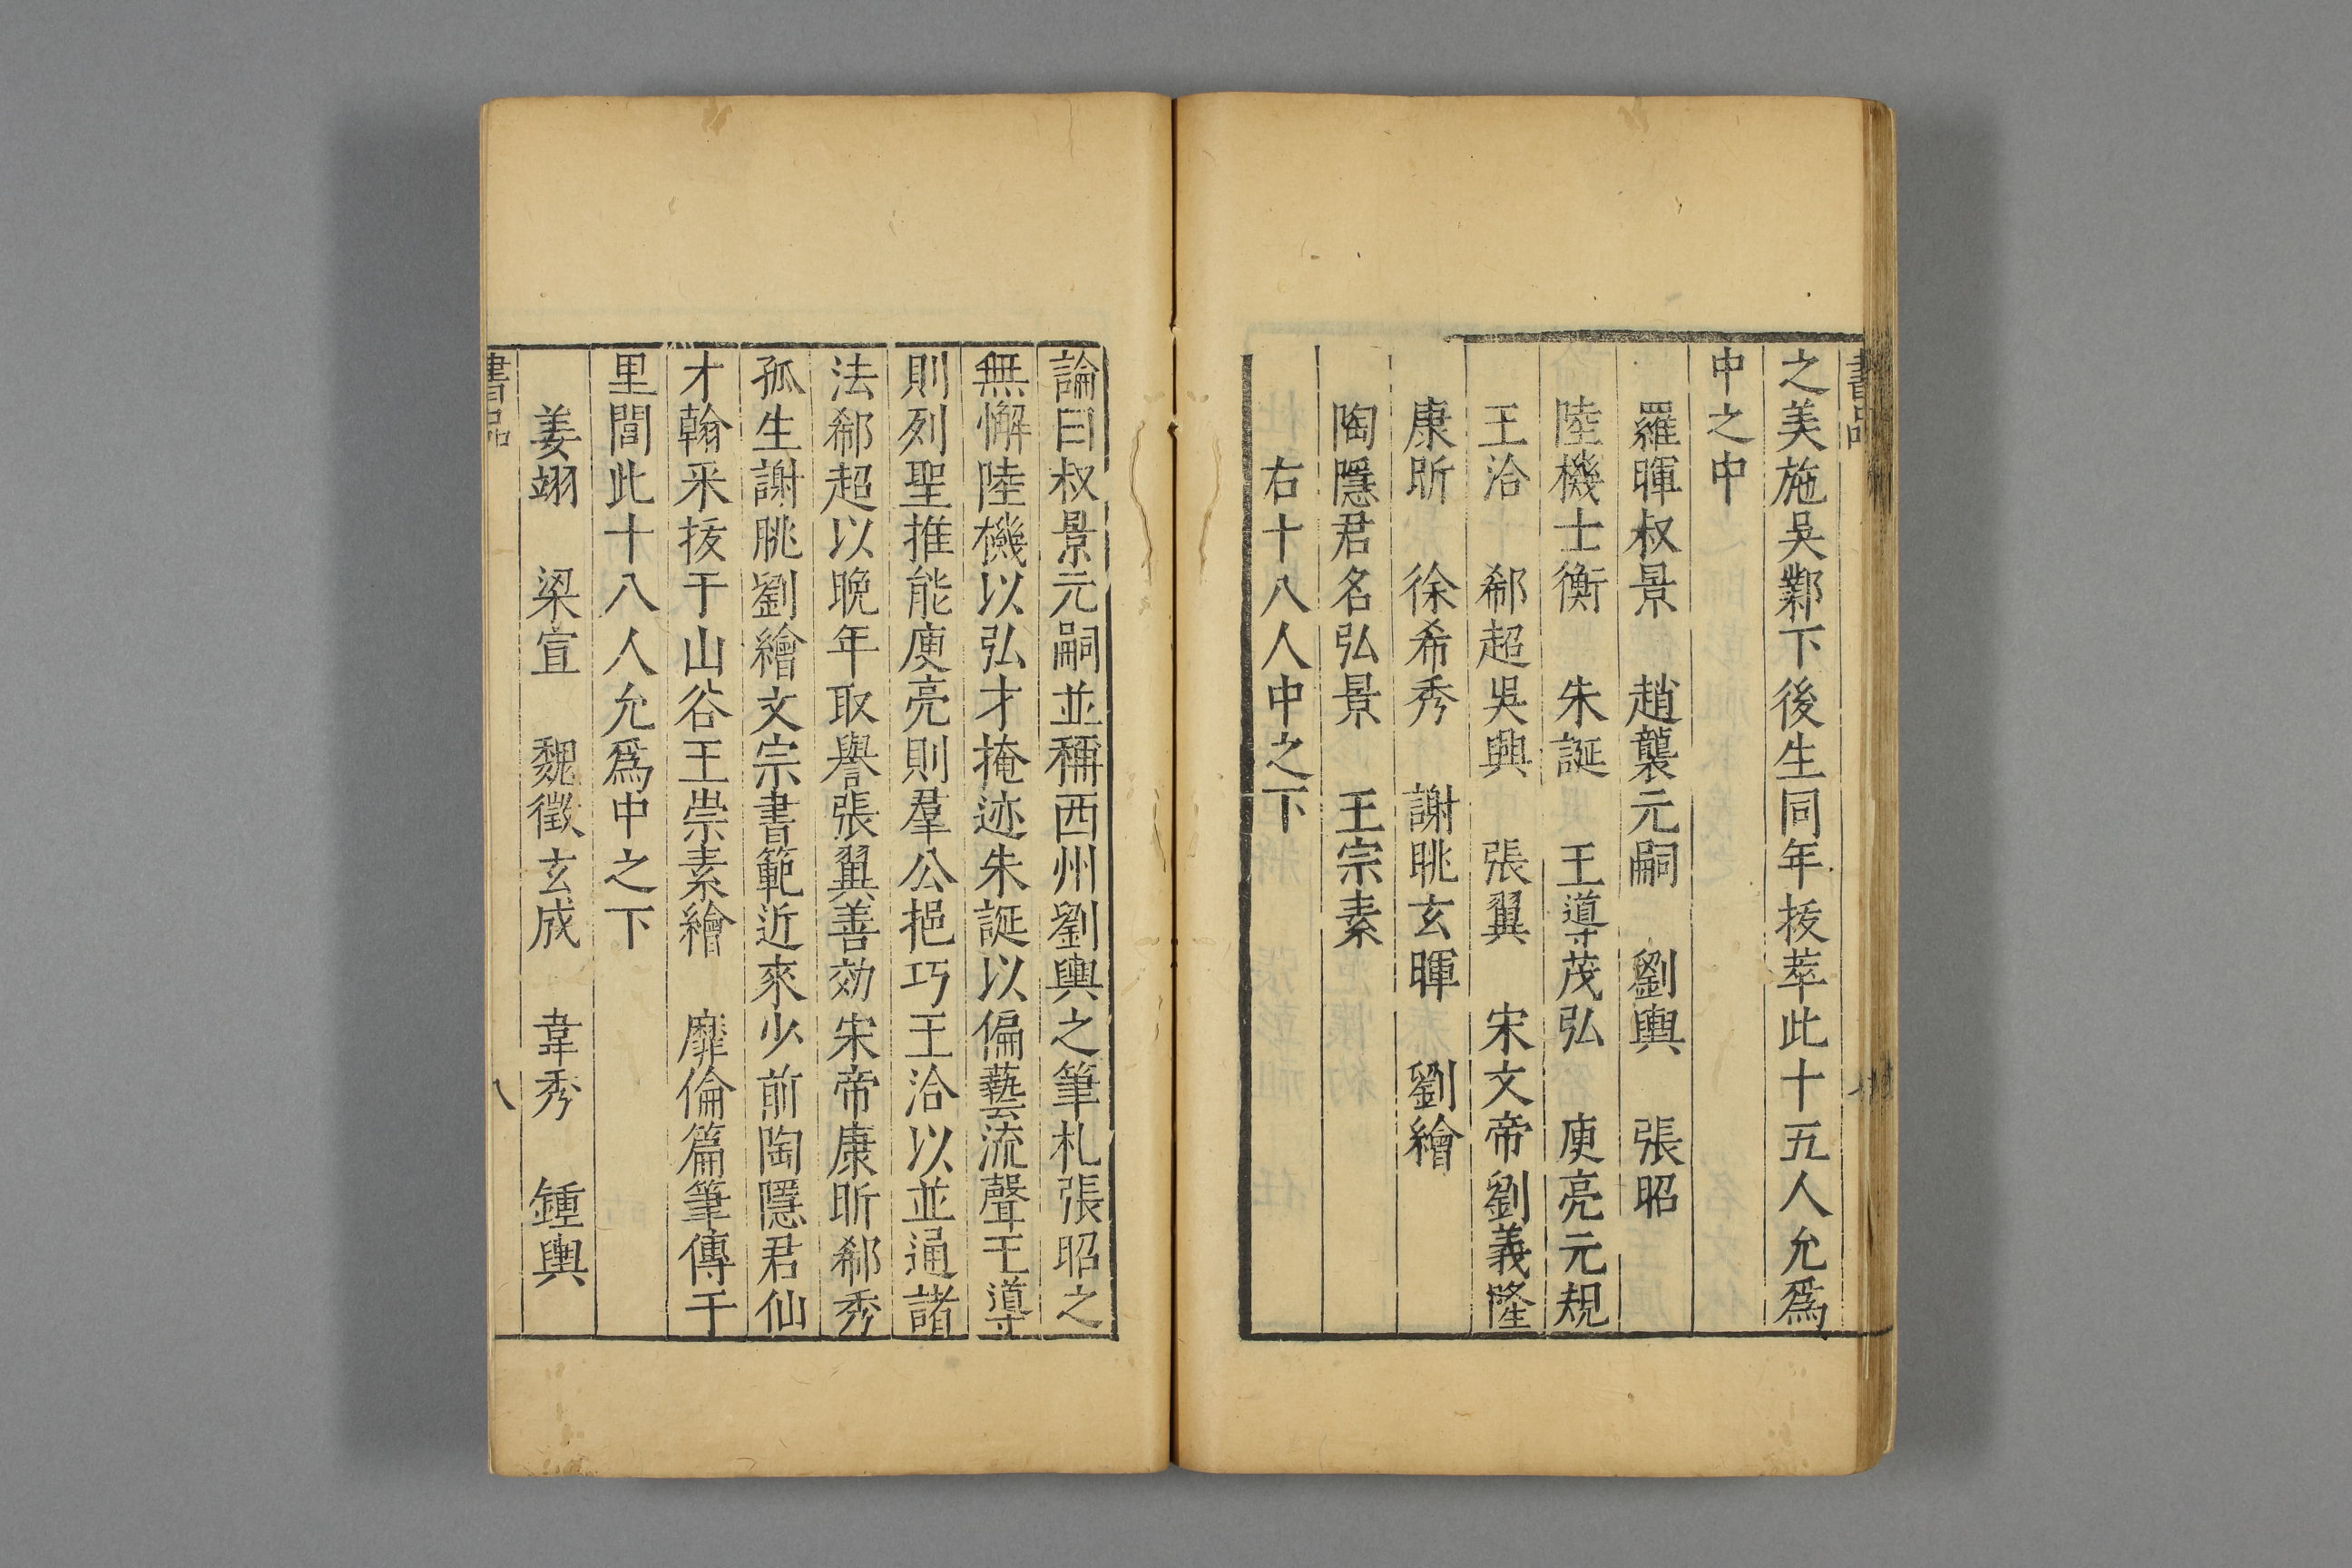 書品
之美施吳鄴下後生同年拔萃此十五人允爲
中之中
羅暉叔景 趙襲元嗣 劉輿 張昭
陸機士衡 朱誕 王導茂弘 庾亮元規
王洽 郗超吳興 張翼 宋文帝劉義隆
康昕 徐希秀 謝眺玄暉 劉繪
陶隱君名弘景 王宗素
右十八人中之下
論曰叔景元嗣並稱西州劉輿之筆札張昭之
無懈陸機以弘才掩迹朱誕以偏藝流聲王導
則列聖推能庾亮則羣公挹巧王洽以並通諸
法郗超以晚年取譽張翼善効宋帝康昕郗秀
孤生謝朓劉繪文宗書範近來少前陶隱君仙
才翰采拔于山谷王崇素繪 靡倫篇筆傳于
里閭此十八人允爲中之下
姜翊 梁宣 魏徵玄成 韋秀 鍾輿
書品
八